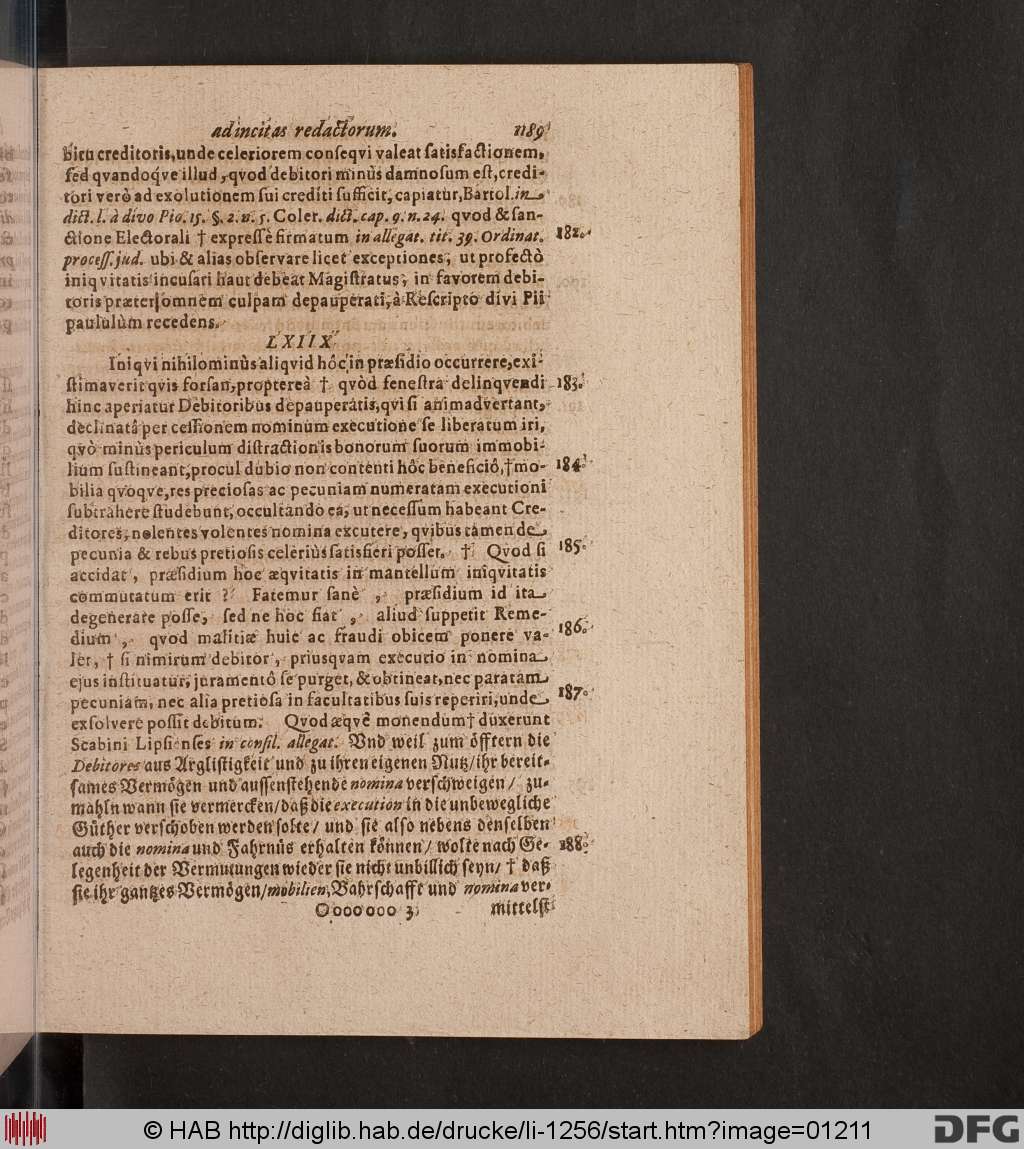 ad incitas redactorum. 1189
bitu creditoris, unde celeriorem conseqvi valeat satisfactionem,
sed qvandoqve illud, qvod debitori minùs damnosum est, credi-
tori verò ad exolutionem sui crediti sufficit, capiatur, Bartol. in
dict. l. à divo Pio. 15. §. 2. n. 5. Coler. dict. cap. 9. n. 24. qvod & san-
ctione Electorali † expressè firmatum in allegat. tit. 39. Ordinat. 182.
process. jud. ubi & alias observare licet exceptiones, ut profectò
iniqvitatis incusari haut debeat Magistratus, in favorem debi-
toris præter omnem culpam depauperati, à Rescripto divi Pii
paululùm recedens.
LXIIX
Iniqvi nihilominùs aliqvid hôc in præsidio occurrere, exi-
stimaverit qvis forsan, propterea † qvòd fenestra delinqvendi 183.
hinc aperiatur Debitoribus depauperatis, qvi si animadvertant,
declinatâ per cessionem nominum executione se liberatum iri,
qvò minùs periculum distractionis bonorum suorum immobi-
lium sustineant, procul dubio non contenti hôc beneficiô, † mo- 184.
bilia qvoqve, res preciosas ac pecuniam numeratam executioni
subtrahere studebunt, occultando ea, ut necessum habeant Cre-
ditores, nolentes volentes nomina excutere, qvibus tamen de
pecunia & rebus pretiosis celeriùs satisfieri posset. † Qvod si 185.
accidat, præsidium hoc æqvitatis in mantellum iniqvitatis
commutatum erit? Fatemur sanè, præsidium id ita
degenerare posse, sed ne hoc fiat, aliud suppetit Reme-
dium, qvod malitiæ huic ac fraudi obicem ponere va- 186.
let, † si nimirum debitor, priusqvam executio in nomina
ejus instituatur, juramentô se purget, & obtineat, nec paratam
pecuniam, nec alia pretiosa in facultatibus suis reperiri, unde 187.
exsolvere possit debitum. Qvod æqvè monendum † duxerunt
Scabini Lipsienses in consil. allegat. Und weil zum öfftern die
Debitores aus Arglistigkeit und zu ihren eigenen Nutz/ ihr bereit-
sames Vermögen und aussenstehende nomina verschweigen/ zu-
mahln wann sie vermercken/ daß die execution in die unbewegliche
Güther verschoben werden solte/ und sie also nebens denselben
auch die nomina und Fahrnüs erhalten können/ wolte nach Ge- 188.
legenheit der Vermutungen wieder sie nicht unbillich seyn/ † daß
sie ihr gantzes Vermögen/ mobilien, Bahrschafft und nomina ver-
Ooooooo 3 mittelst
© HAB http://diglib.hab.de/drucke/li-1256/start.htm?image=01211
DFG